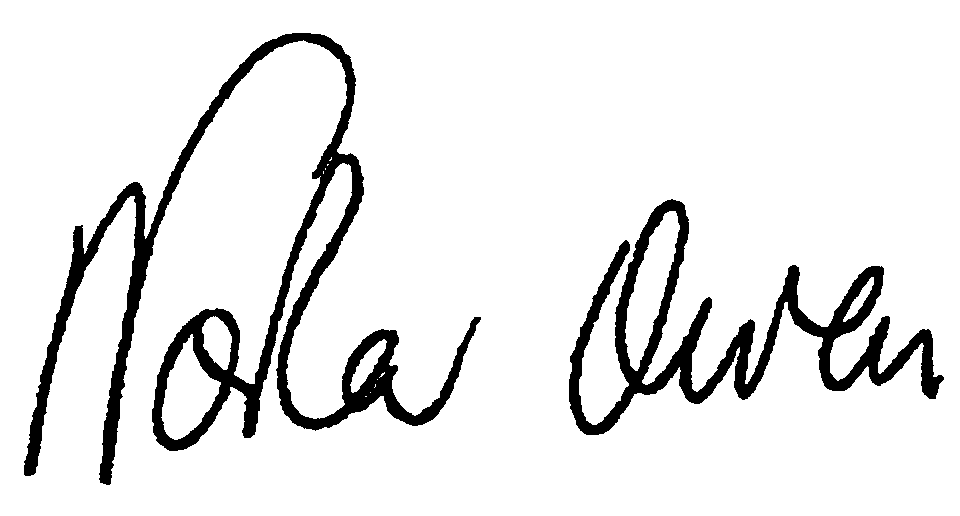 Nola Owen